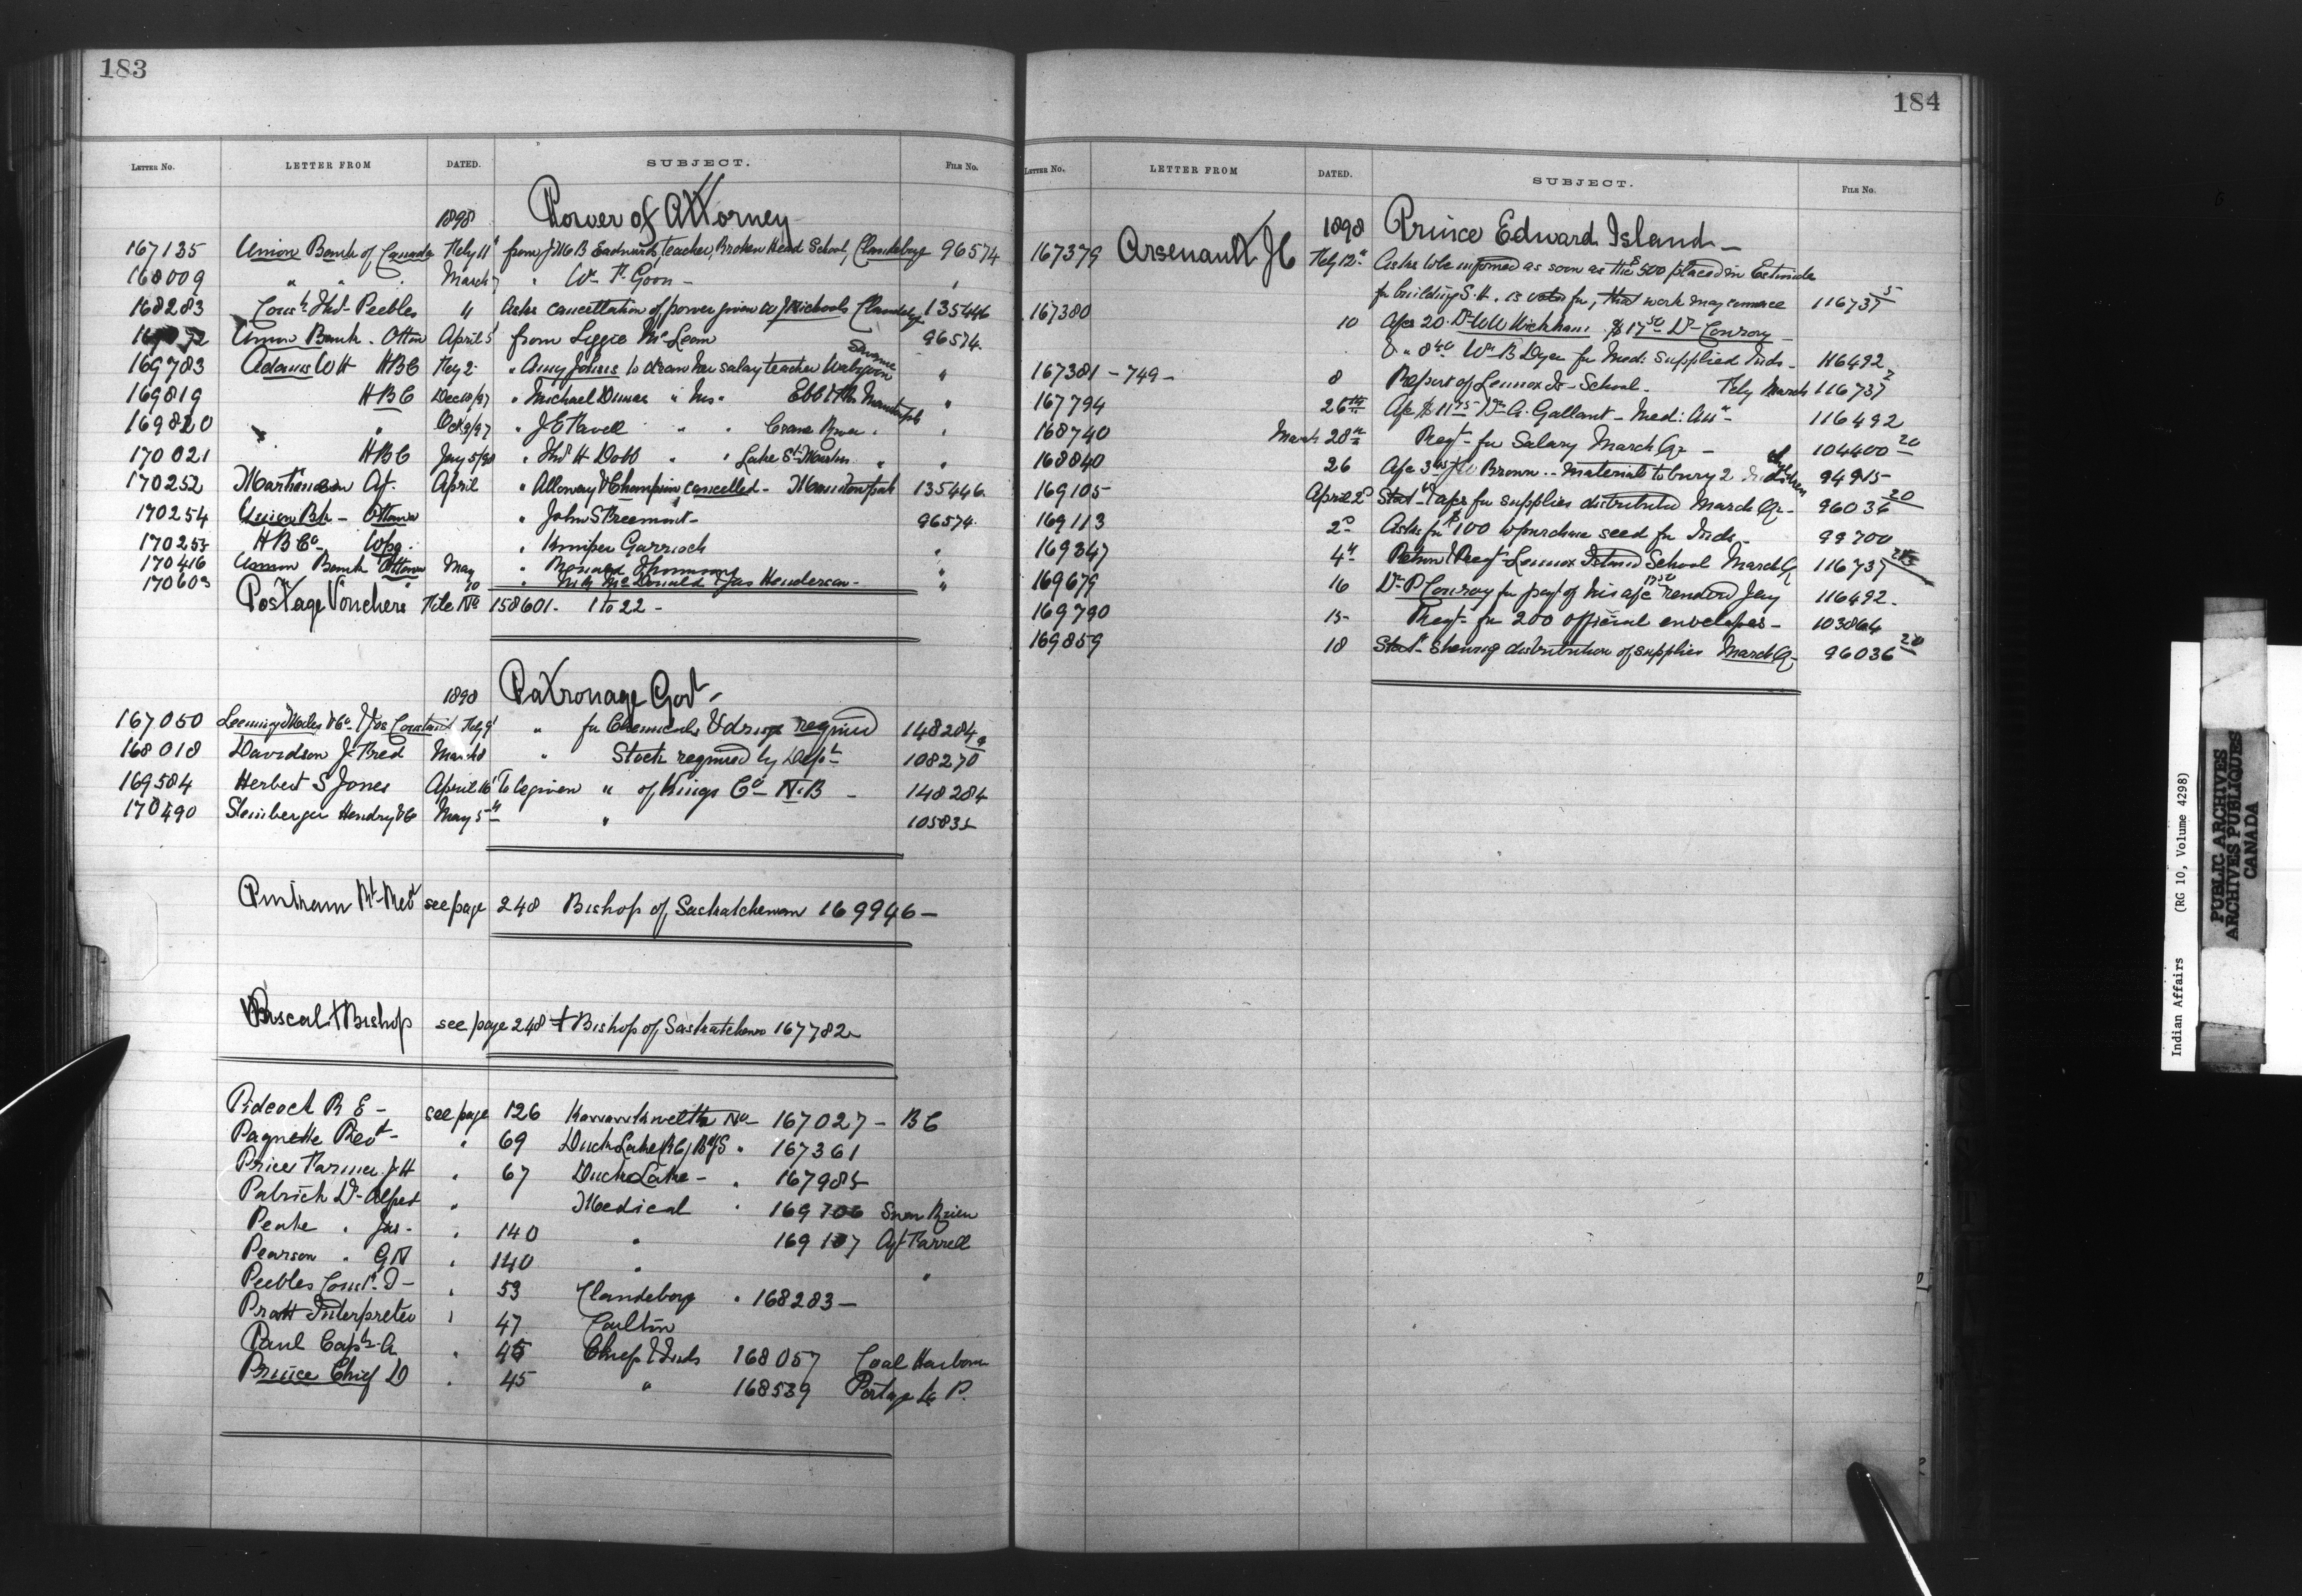 183
LETTER No. LETTER FROM DATED. SUBJECT. FILE No.
1898 Power of Attorney
167135 Union Bank of Canada Feby 11 from J Mc B Eadwards, teacher, Broken Head School, Clandeboye 96574
168009 " " March 7 " Wm F. Goon - "
168283 Const. Thos Peebles " Asks cancellation of power given to J Nichools Clandeboye 135446
Union Bank. Ottaw April 5 from Lizzie McLean 96574.
169783 Adams W H HBC Feby 2 " Amy Johns to draw her salary teacher "
169819 HBC Dec 18/97 " Michael " his " Ebb & Flow Manitowpah "
169820 " " Oct 9/97 " J E Favell " " Crane River. "
170021 HBC Jany 5/98 " Thos H Dobb " " Lake St Martin " "
170252 Martineau Agt. April " Alloway & Champion cancelled - Manitowpah 135446
170254 Union Bk - Ottawa " John S Freemont - 96574
170253 HBCo - Wpg. " Juniper Garrioch "
170416 Union Bank Ottawa May " Ronald "
" " 10 " McDonald & Jas Henderson - "
Postage Vouchers File No 158601. 1 to 22 -
1898 Patronage Govt -
167050 Leeming Miles & Co. & Jos Constant Feby 9 " for Chemicals & drugs required 148284
168018 Davidson J. Fred March 8 " Stock required by Dept 108270
169584 Herbert S Jones April 16 To be given " of Kings Co - N.B - 148284
170490 Steinberger Hendry & Co May 5th " 105835
Pinkham Rt Revd see page 248 Bishop of Saskatchewan 169946 -
Pascal † Bishop see page 248 † Bishop of Saskatchewn 167782
Pideock R E - see page 126 Kawawkwelth No - 167027 - BC
Paquette Revd - " 69 Duck Lake (RC) B.S " 167361
Price Farmer J H " 67 Duck Lake - " 167985
Patrick Dr Alfred " Medical " 169706
Peake " Jas - " 140 " 169107 Agt Farrell
Pearson " G N " 140 " "
Peebles Const. T - " 53 Clandeboye " 168283 -
Pratt Interpreter " 47 Carlton
Paul Capt. A " 45 Chiefs & Inds 168057 Coal Harbour
Prince Chief D " 45 " 168539 Portage La P.
184
LETTER No. LETTER FROM DATED. SUBJECT. FILE No.
1898 Prince Edward Island -
167379 Arsenault J C Feby 12th Asks to be informed as soon as the $500 placed in Estimate
for building S.H. is voted for, that work may commence 116737 5
167380 10 A/cs 20. Dr W W Wickham. $17 50 Dr Conroy -
& " 8 40 Wm B Dyer for Med: supplied Inds - 116492
167381 - 749 - 8 Report of Lennox Is - School. Feby March 116737 2
167794 26th A/c $11 75 Dr A. Gallant - Med: Attn - 116492
168740 March 28th Reqt - for Salary March Qr - 104400 20
168840 26 A/c J W Brown - materials to bury 2 94915
169105 April 2d Stat. & a/cs for supplies distributed March Qr - 96036 20
169113 2d Asks for $100 to purchase seed for Inds - 99700
169347 4th Return & Reqt - Lennox Island School March Qr 116737
169679 16 Dr P Conroy for payt of his a/c 17 50 rendered Jany 116492.
169790 15 Reqt - for 200 official envelopes - 103864
169859 18 Stat - shewing distribution of supplies March Qr - 96036 20
Indian Affairs (RG 10, Volume 4298)
PUBLIC ARCHIVES
ARCHIVES PUBLIQUES
CANADA